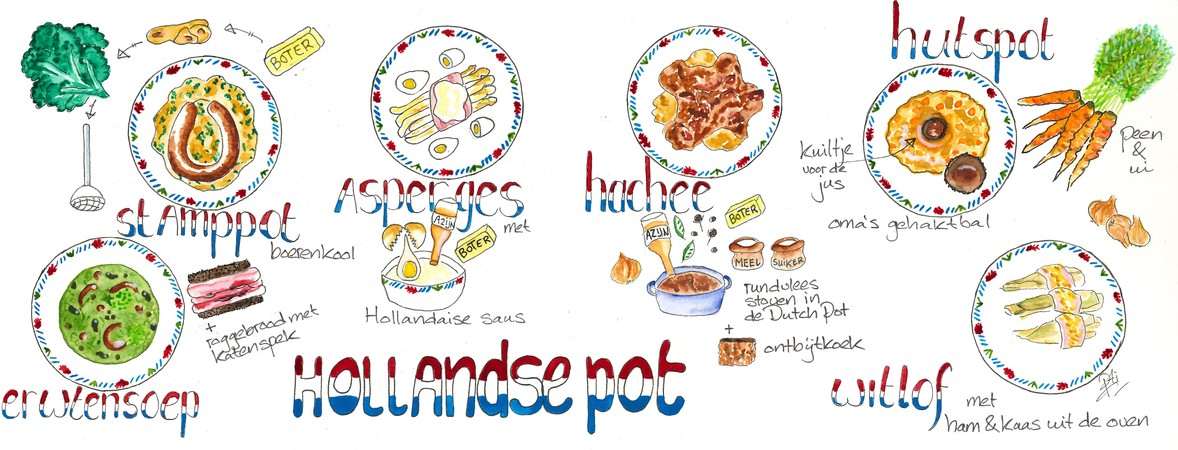 BOTER
stAmppot
boerenkool
Asperges
met
AZIJN
BOTER
Hollandaise saus
hachee
AZIJN
BOTER
MEEL
SUIKER
rundvlees
stoven in
de Dutch Pot
+
ontbijtkoek
hutspot
peen
&
ui
kuiltje
voor de
jus
oma's gehaktbal
erwtensoep
+
roggebrood met
katenspek
HOLLANdSE pot
witlof
met
ham & kaas uit de oven